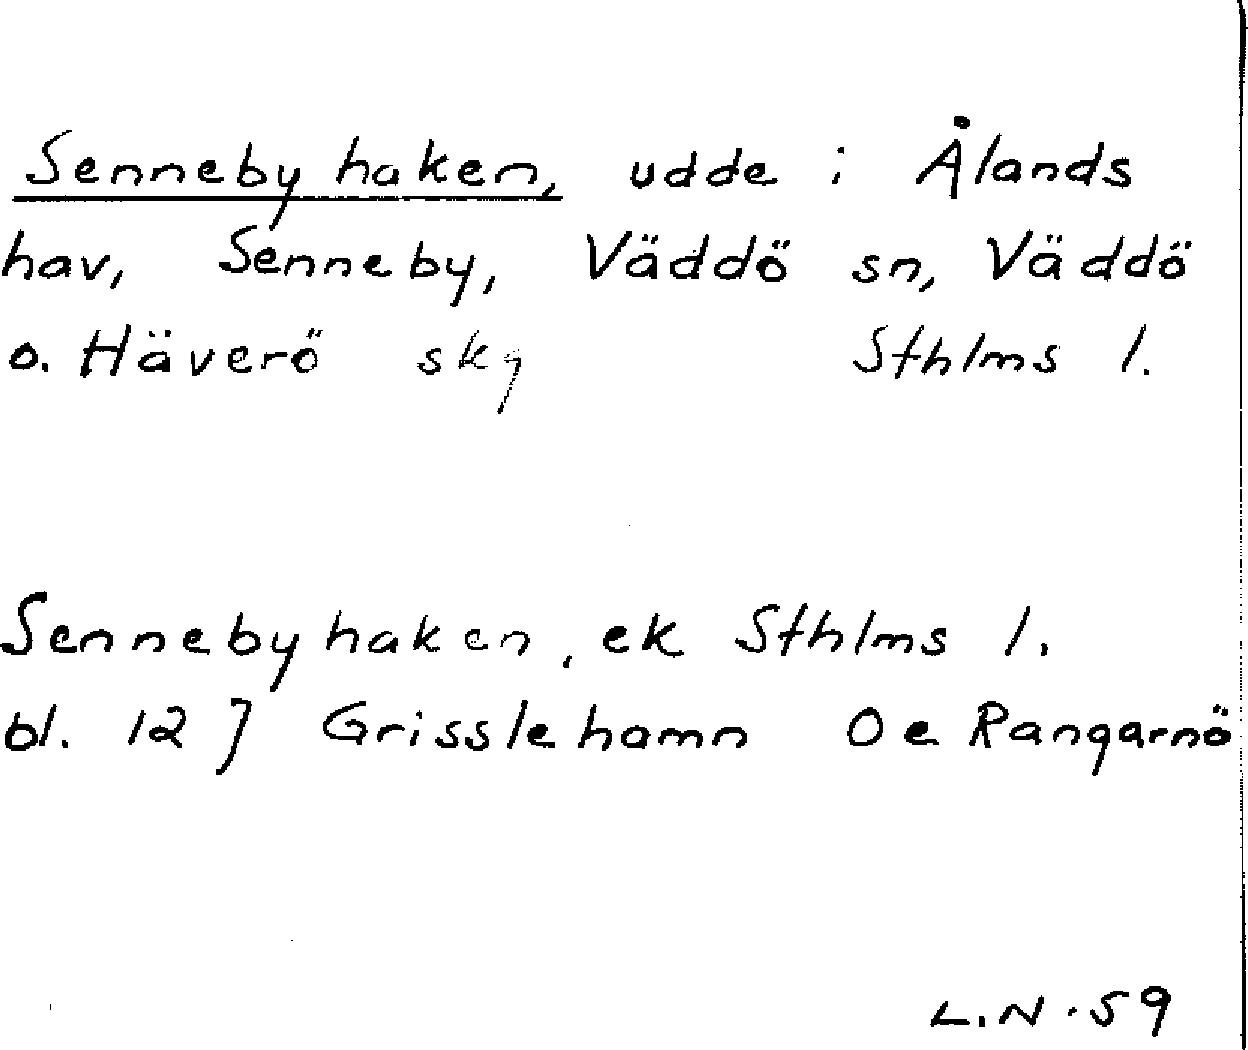 Sennebyhaken, udde i Ålands
hav, Senneby, Väddö sn, Väddö
o. Häverö skg Sthlms l.
Sennebyhaken, ek Sthlms l.
bl. 12 J Grisslehamn Oe Rangarnö
L.N.59